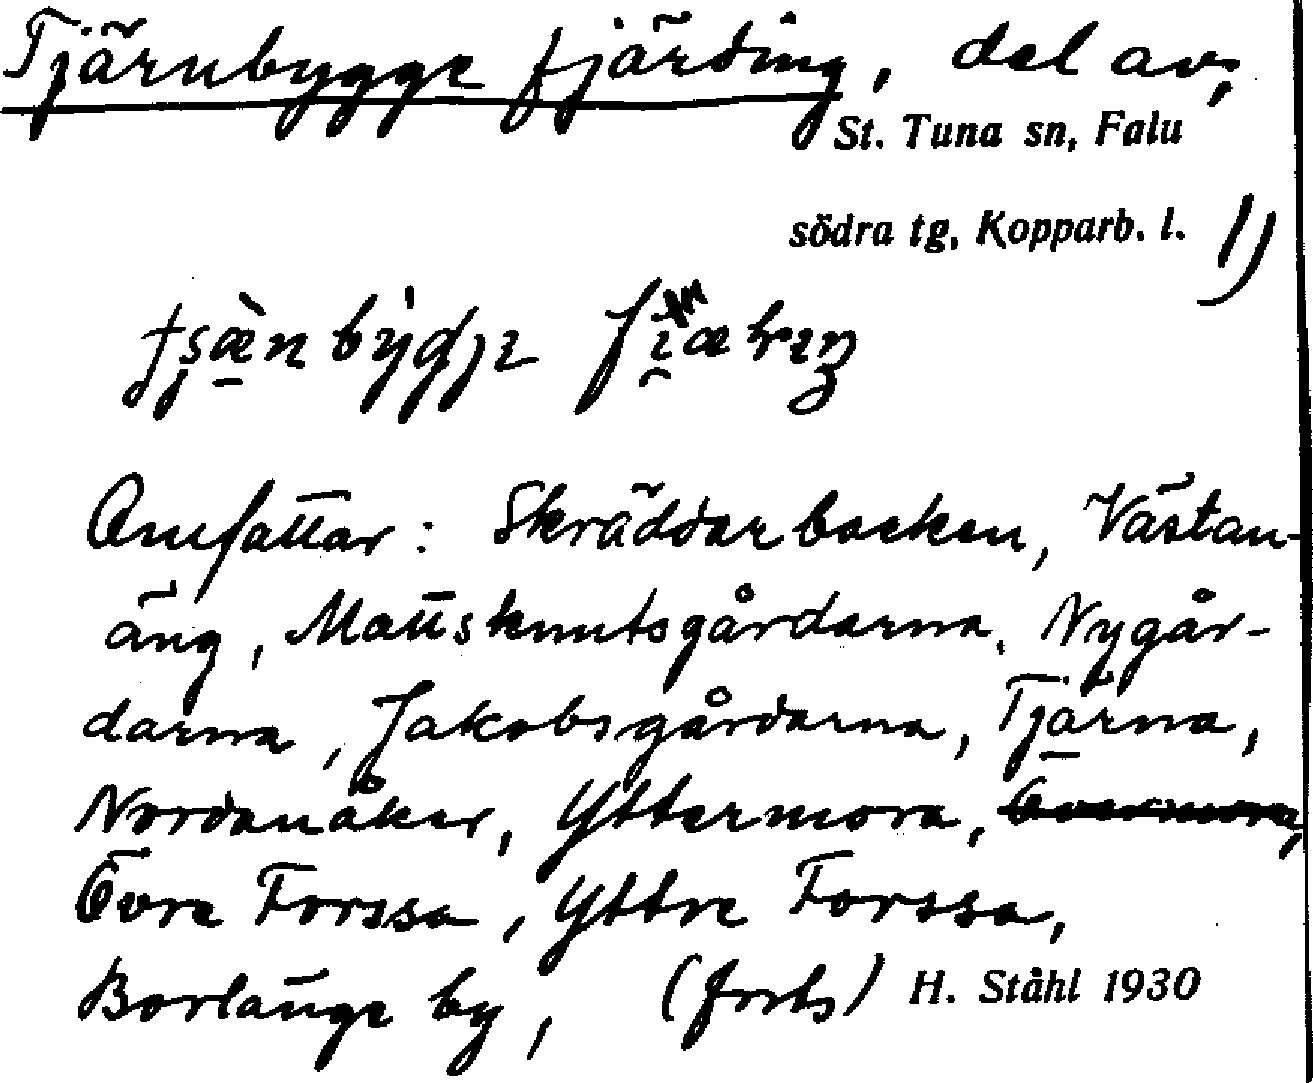 Tjärnbygge fjärding, del av,
St. Tuna sn, Falu
södra tg, Kopparb. l. 1)
Omfattar: Skräddarbacken, Västan-
äng, Mattsknutsgårdarna, Nygår-
darna, Jakobsgårdarna, Tjärna,
Nordanåker, Yttermora, Övermora,
Övre Forssa, Yttre Forssa,
Borlänge by, (forts) H. Ståhl 1930